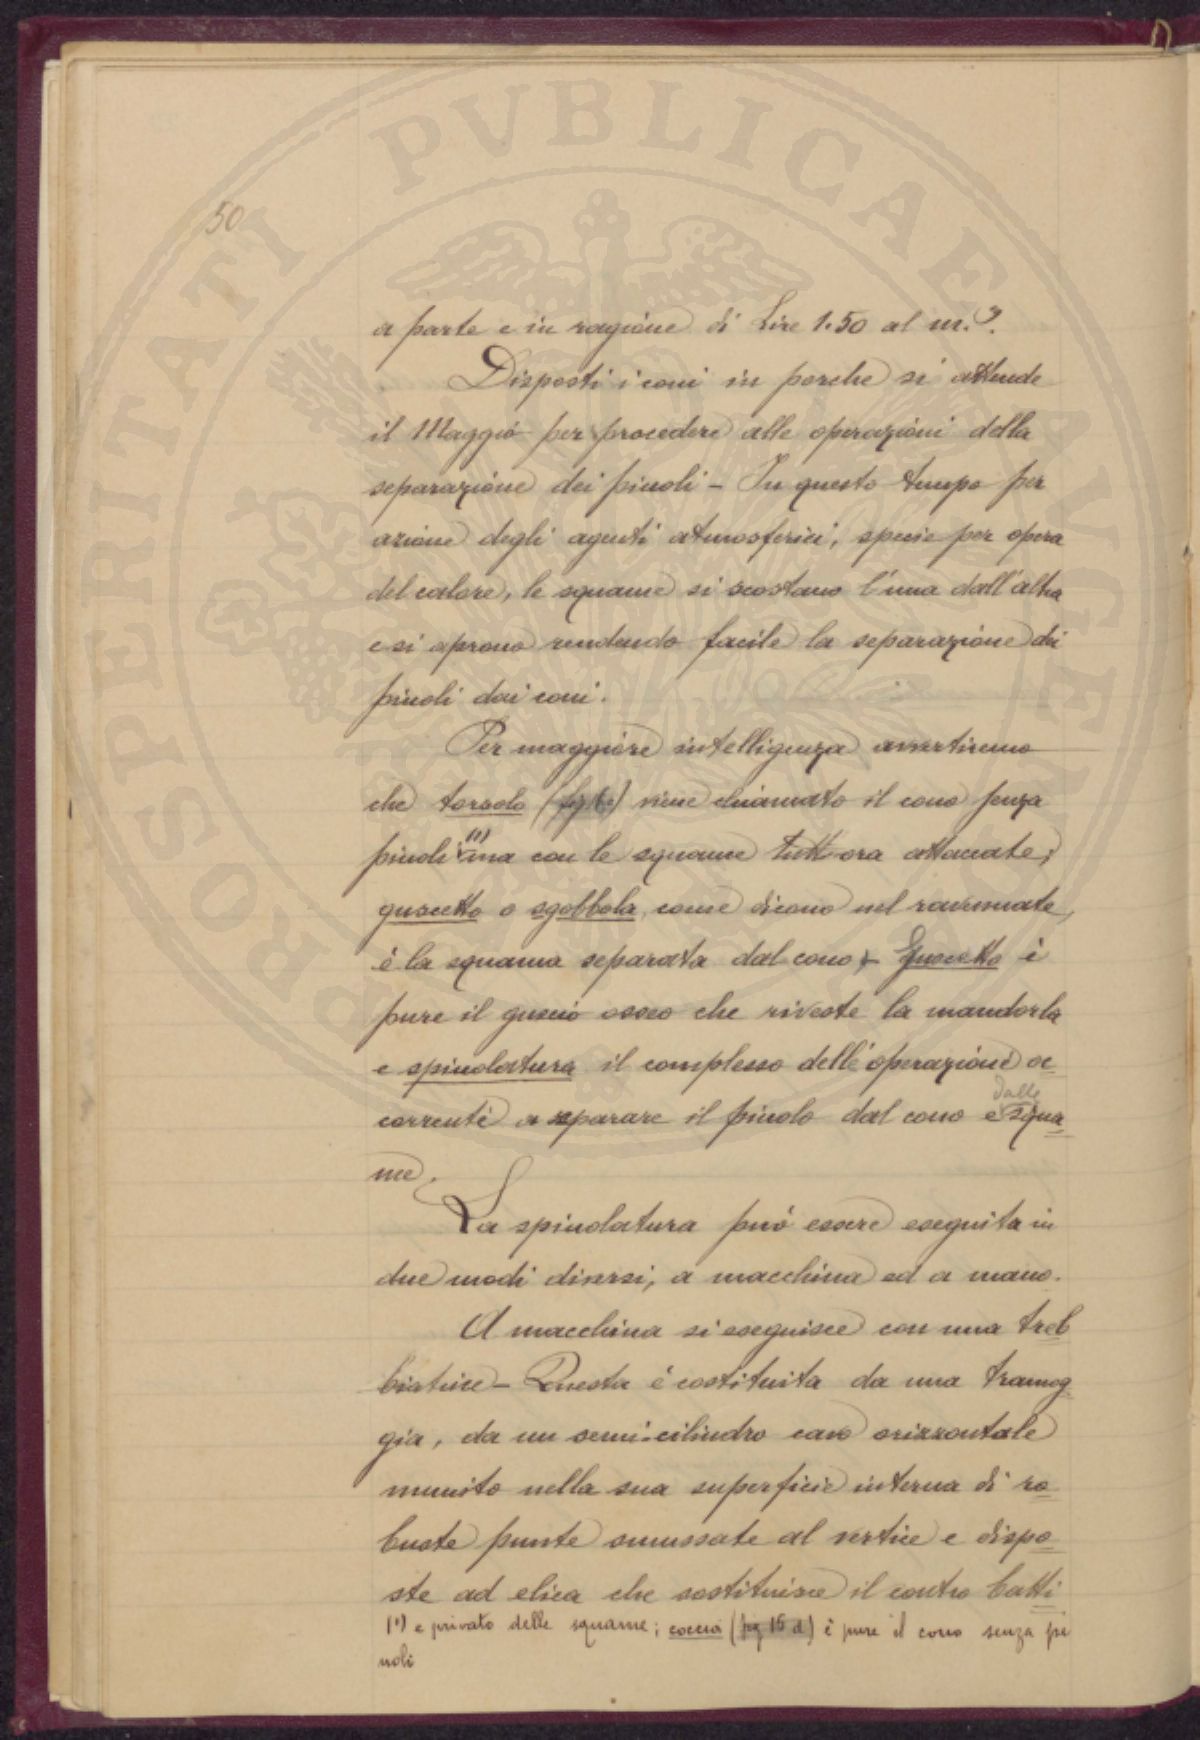 50
a parte e in ragione di Lire 1.50 al m.³.
Disposti i coni in porche si attende
il Maggio per procedere alle operazioni della
separazione dei pinoli – In questo tempo per
azione degli agenti atmosferici, specie per opera
del calore, le squame si scostano l'una dall'altra
e si aprono rendendo facile la separazione dei
pinoli dai coni.
Per maggiore intelligenza avvertiremo
che torsolo (fig. ) viene chiamato il cono senza
pinoli (1) ma con le squame tutt ora attaccate;
guscetto o sgobbola, come dicono nel ravennate,
è la squama separata dal cono – Guscetto è
pure il guscio osseo che riveste la mandorla
e spinolatura il complesso delle operazioni oc
correnti a separare il pinolo dal cono e dalle squa
me.
La spinolatura può essere eseguita in
due modi diversi, a macchina ed a mano.
A macchina si eseguisce con una treb
biatrice – Questa è costituita da una tramog
gia, da un semi-cilindro cavo orizzontale
munito nella sua superficie interna di ro
buste punte smussate al vertice e dispo
ste ad elica che sostituisce il contro batti
(1) e privato delle squame; coccia (fig 15 d) è pure il cono senza pi
noli
PROSPERITATI PVBLICAE AVGENDAE